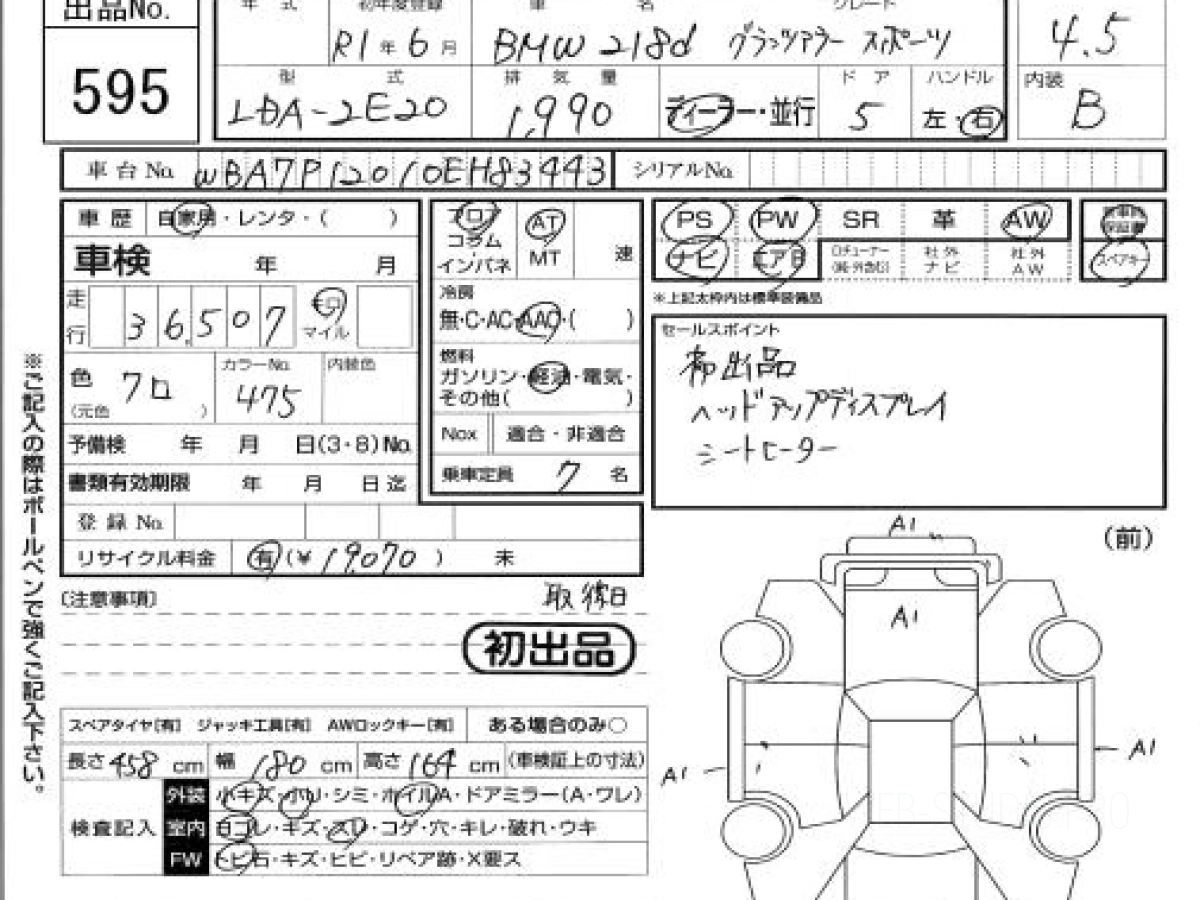 出品No.
年 式 初年度登録 車 名 グレード
595
R1年6月 BMW 218d グランツアラー スポーツ 4.5
型 式 排 気 量 ド ア ハンドル 内装
LDA-2E20 1,990 ディーラー・並行 5 左・右 B
車 台 No. WBA7P12010EH83443 シリアルNo.
車 歴 自家用・レンタ・( )
車検 年 月
走行 36,507 キロ マイル
色 クロ (元色 ) カラーNo. 475 内替色
予備検 年 月 日(3・8)No.
書類有効期限 年 月 日迄
登 録 No.
リサイクル料金 有(¥ 19,070 ) 未
フロア コラム インパネ AT MT 速
冷房
無・C・AC・AAC・( )
燃料
ガソリン・軽油・電気・
その他( )
Nox 適合・非適合
乗車定員 7 名
PS PW SR 革 AW 新車時保証書
ナビ エアB 社外ナビ 社外AW スペアキー
※上記太枠内は標準装備品
セールスポイント
初出品
ヘッドアップディスプレイ
シートヒーター
※ご記入の際はボールペンで強くご記入下さい。
〔注意事項〕
初出品
スペアタイヤ[有] ジャッキ工具[有] AWロックキー[有] ある場合のみ○
長さ 458 cm 幅 180 cm 高さ 164 cm (車検証上の寸法)
検査記入
外装 小キズ・小U・シミ・ホイルA・ドアミラー(A・ワレ)
室内 ヨゴレ・キズ・スレ・コゲ・穴・キレ・破れ・ウキ
FW トビ石・キズ・ヒビ・リペア跡・X要ス
(前)
A1
A1
A1
A1